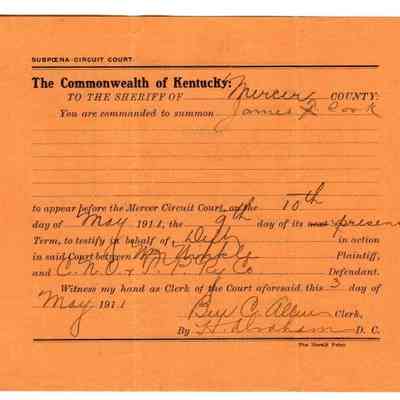 SUBPŒNA-CIRCUIT COURT
The Commonwealth of Kentucky:
TO THE SHERIFF OF Mercer COUNTY:
You are commanded to summon James Q. Cook
to appear before the Mercer Circuit Court, on the 10th
day of May 1911, the 9th day of its next present
Term, to testify in behalf of Deft in action
in said Court between Wm Plaintiff,
and C. N. O. & T. P. Ry Co Defendant.
Witness my hand as Clerk of the Court aforesaid, this 3 day of
May 1911 Ben C. Allin Clerk,
By H. Abraham D. C.
The Herald Print